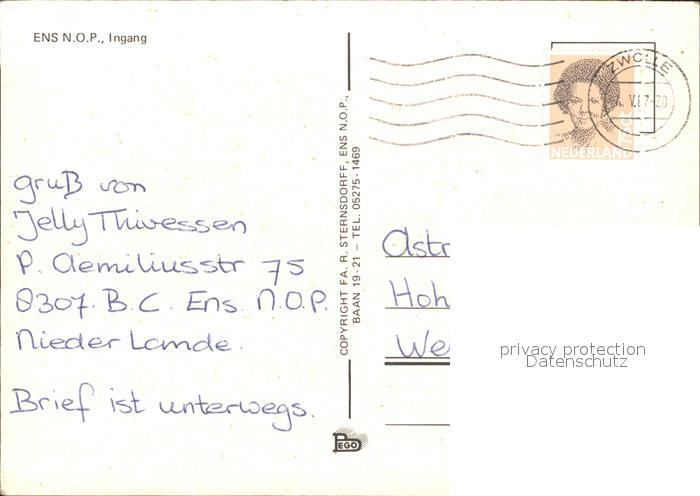 ENS N.O.P., Ingang
gruß von
Jelly Thivessen
P. Aemiliusstr 75
8307. B.C. Ens. N.O.P.
Nieder Lande.
Brief ist unterwegs.
COPYRIGHT FA. R. STERNSDORFF, ENS N.O.P.,
BAAN 19-21 – TEL. 05275-1469
PEGO
ZWOLLE
75c
NEDERLAND
Astr
Hoh
We
privacy protection
Datenschutz